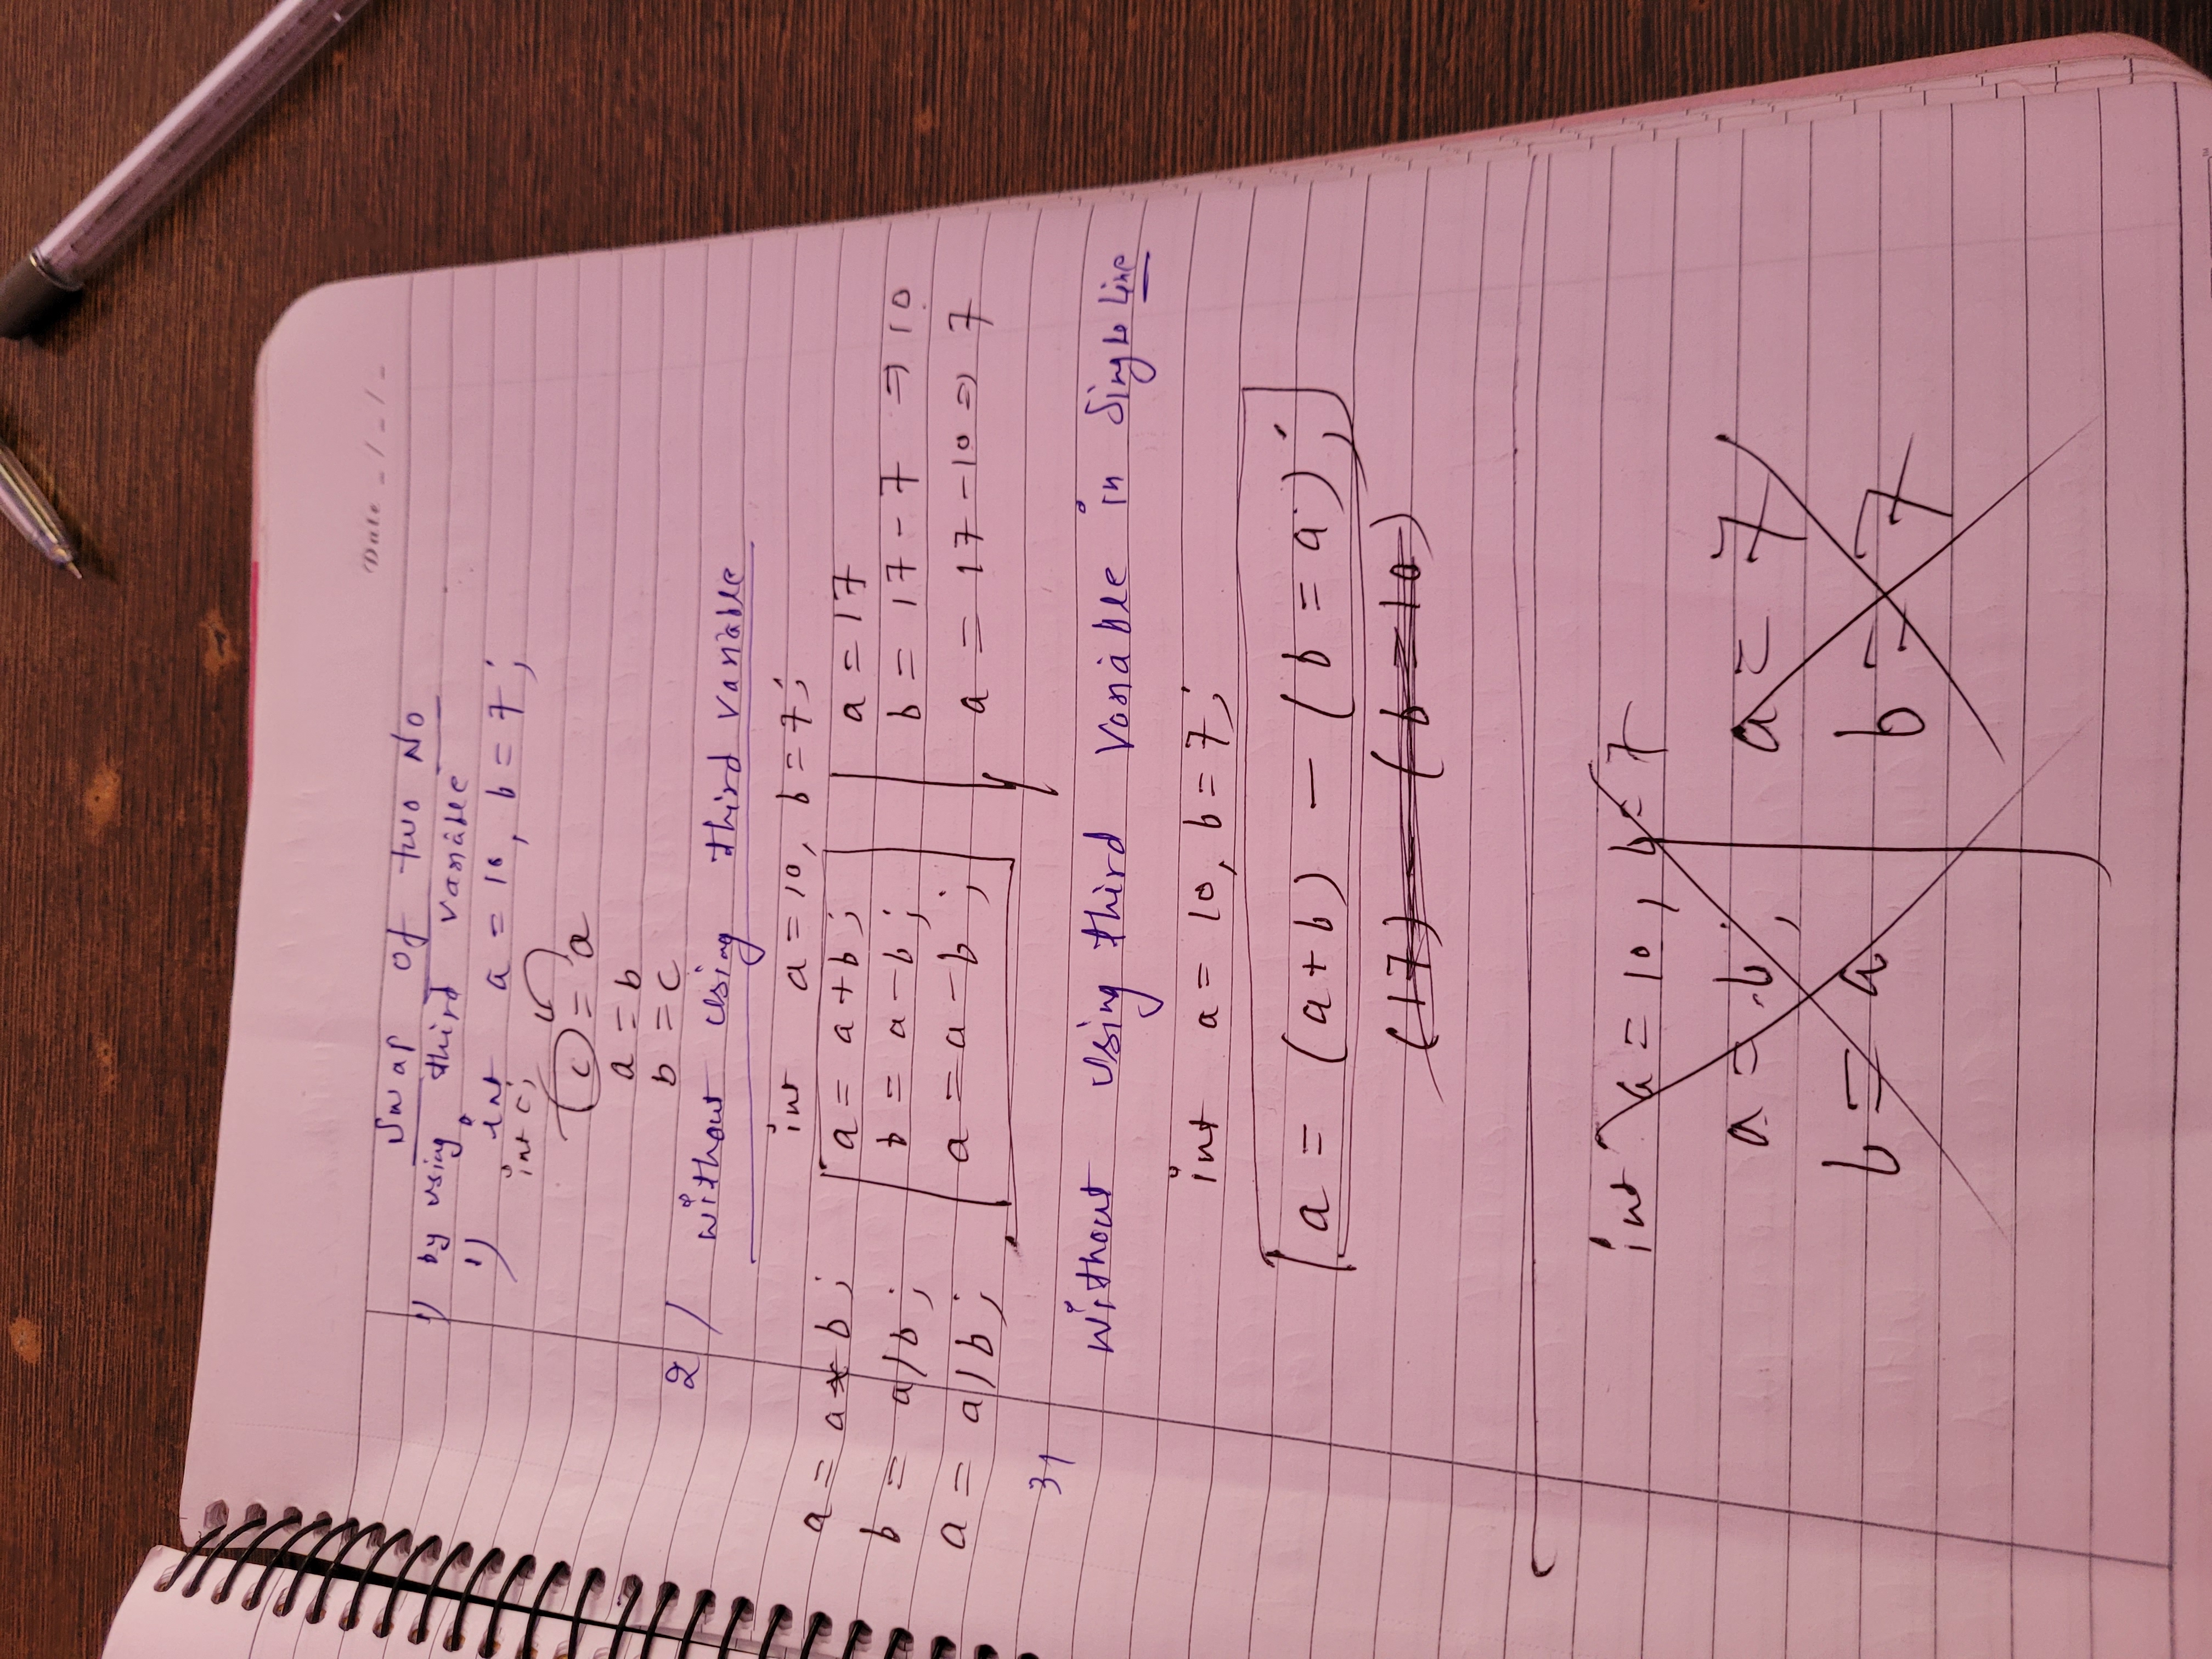 Date _ / _ / _
Swap of two No
1) by using third variable
1) int a = 10, b = 7;
int c;
c = a
a = b
b = c
2 / without using third variable
int a = 10, b = 7;
a = a * b; a = a + b; a = 17
b = a / b; b = a - b; b = 17 - 7 => 10
a = a / b; a = a - b; a = 17 - 10 => 7
3) without using third variable in single line
int a = 10, b = 7;
a = (a + b) - (b = a);
(17) - (b = 10)
int a = 10, b = 7
a = b; a = 7
b = a b = 7